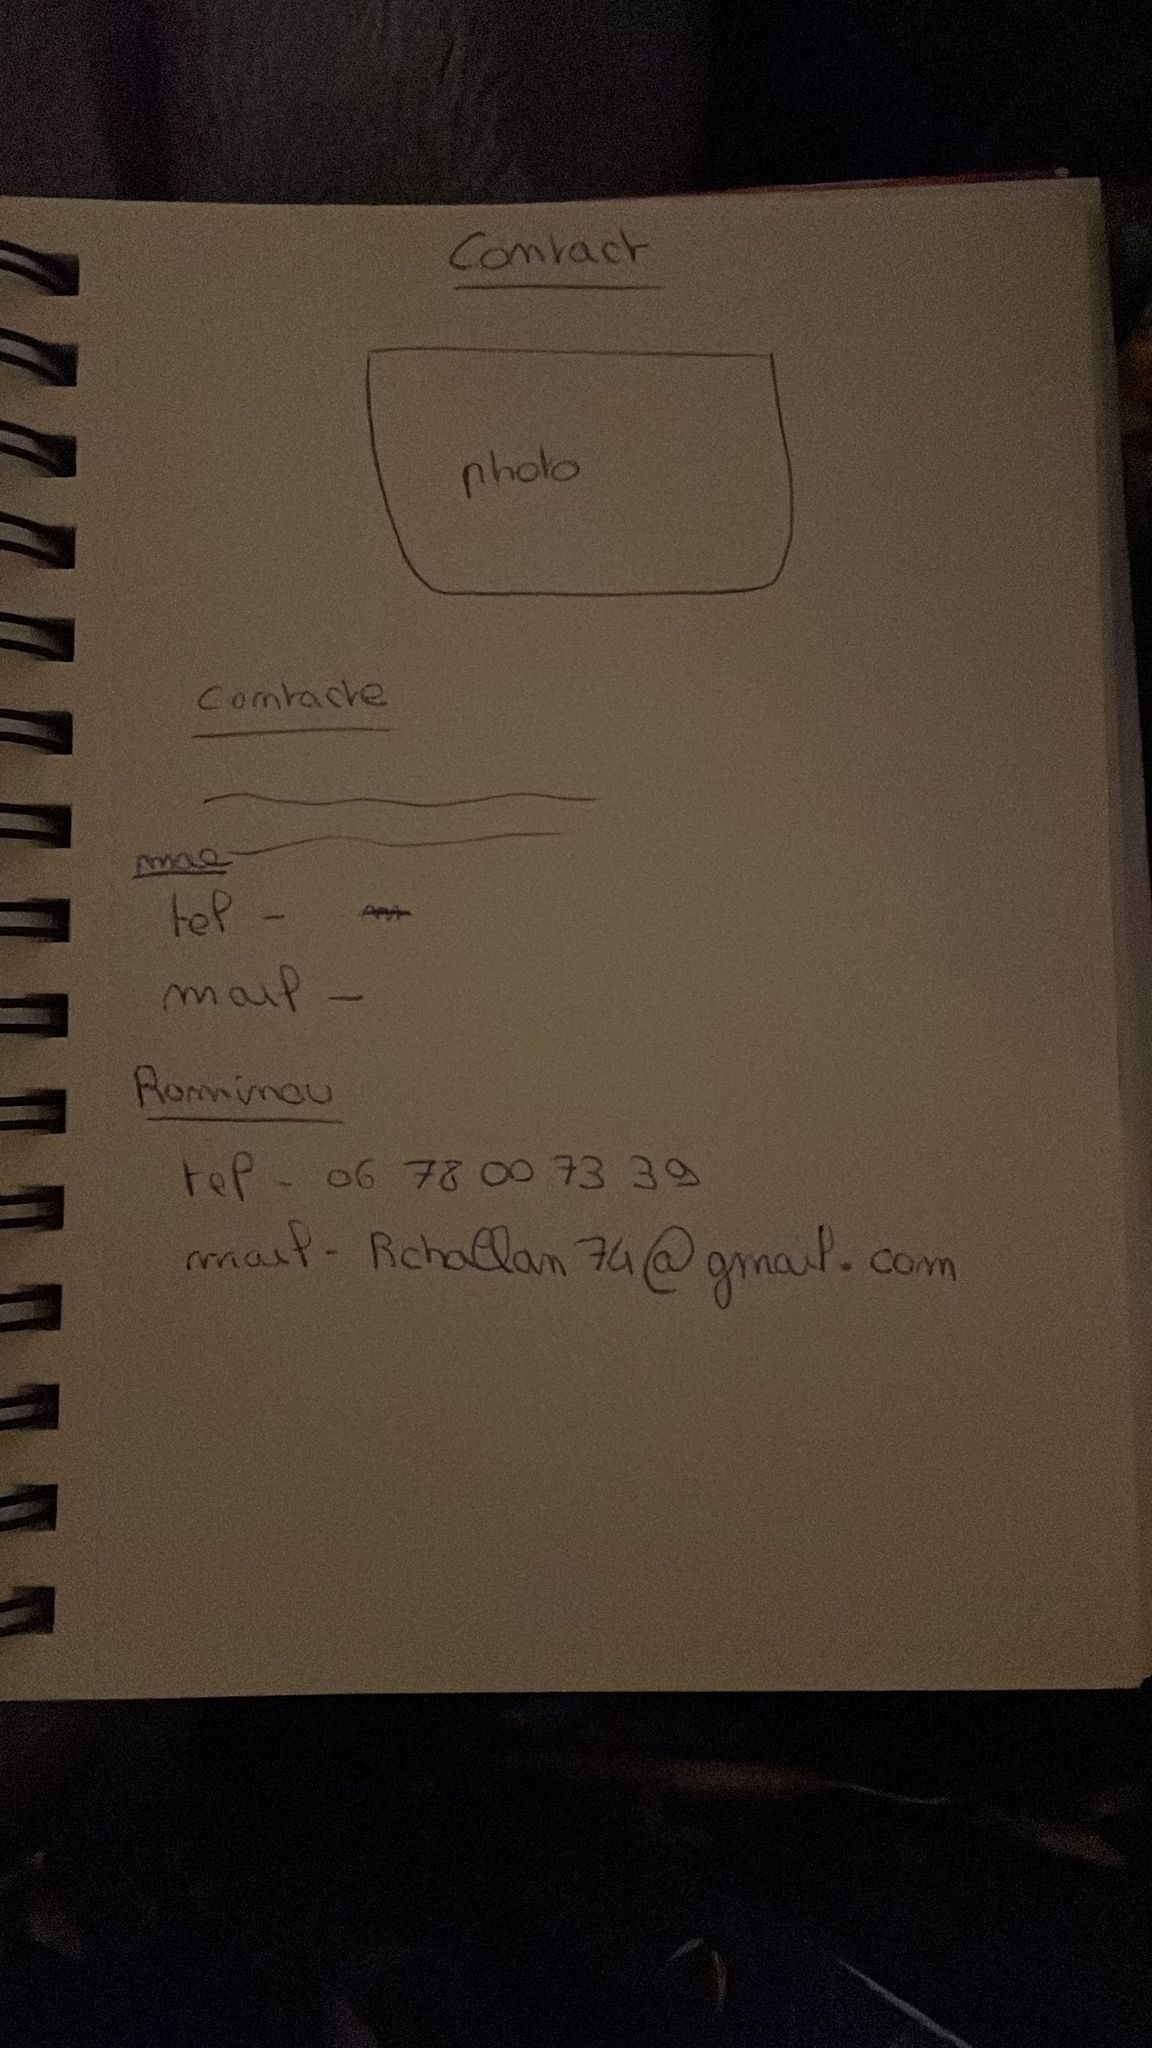 Contact
photo
Contacte
mae
tel -
mail -
Rominou
tel - 06 78 00 73 39
mail - Rchallan74@gmail.com